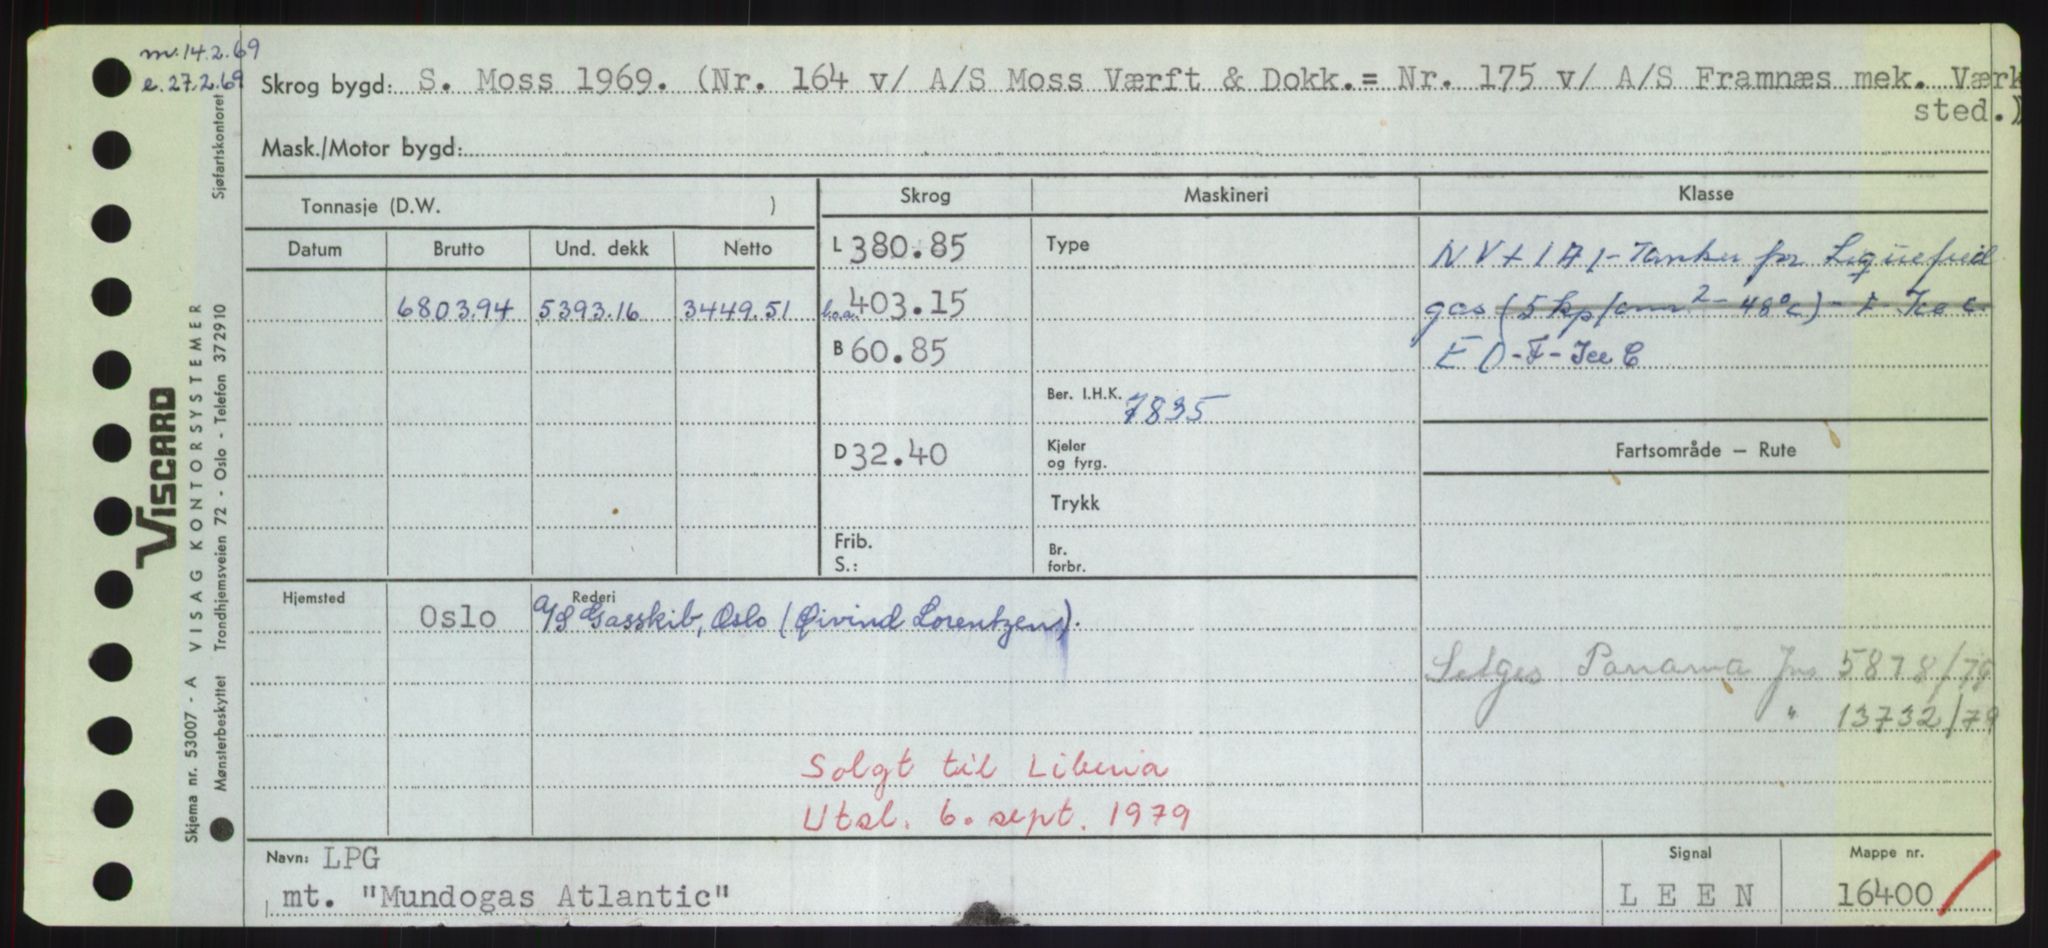 m. 14.2.69
e. 27.2.69
Skrog bygd: S. Moss 1969. (Nr. 164 v/ A/S Moss Værft & Dokk.= Nr. 175 v/ A/S Framnæs mek. Værk
sted.)
Mask./Motor bygd:
Tonnasje (D.W. )
Skrog
Maskineri
Klasse
Datum
Brutto
Und. dekk
Netto
L 380.85
Type
NV+1A1-Tanker for Liquefied
6803.94
5393.16
3449.51
l.o.a. 403.15
gas (5 kp/cm² - 48°C) - F - Ice C
B 60.85
EO-F-Ice C
Ber. I.H.K. 7835
D 32.40
Kjeler
og fyrg.
Fartsområde — Rute
Trykk
Frib.
S.:
Br.
forbr.
Hjemsted
Oslo
Rederi
A/S Gasskib, Oslo (Øivind Lorentzen).
Selges Panama Jnr 5878/79
" 13732/79
Solgt til Liberia
Utsl. 6. sept. 1979
Navn: LPG
mt. "Mundogas Atlantic"
Signal
LEEN
Mappe nr.
16400
VISCARD
Skjema nr. 53007 - A VISAG KONTORSYSTEMER
Mønsterbeskyttet Trondhjemsveien 72 - Oslo - Telefon 372910 Sjøfartskontoret